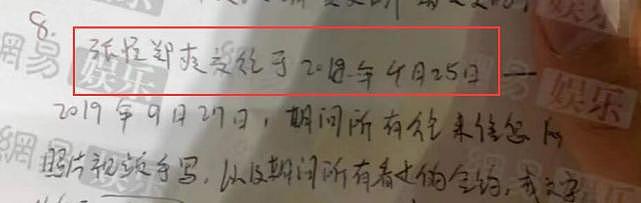 8.
张恒郑爽交往于2018年4月25日——
2019年9月27日，期间所有往来信息的
照片视频手写，以及期间所有看过的合约，或文字
網易娱乐
網易娱乐
網易
娱乐